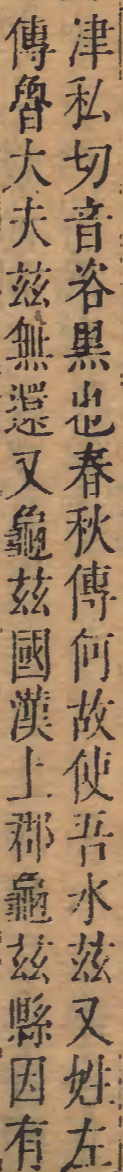 津私切音咨黒也春秋傳何故使吾水茲又姓左
傳魯大夫茲無還又龜茲國漢上郡龜茲縣因有